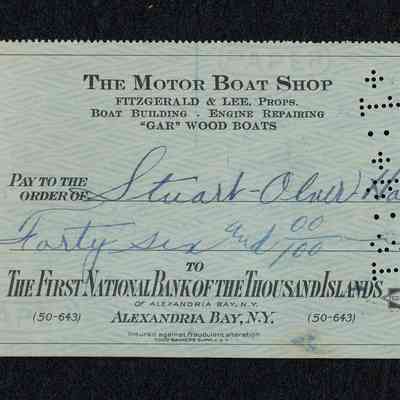 THE MOTOR BOAT SHOP
FITZGERALD & LEE, PROPS.
BOAT BUILDING - ENGINE REPAIRING
"GAR" WOOD BOATS
PAY TO THE
ORDER OF Stuart-Oliver Ho
Forty six and 00/100
TO
THE FIRST NATIONAL BANK OF THE THOUSAND ISLANDS
OF ALEXANDRIA BAY, N.Y.
(50-643) ALEXANDRIA BAY, N.Y. (50-643)
Insured against fraudulent alteration